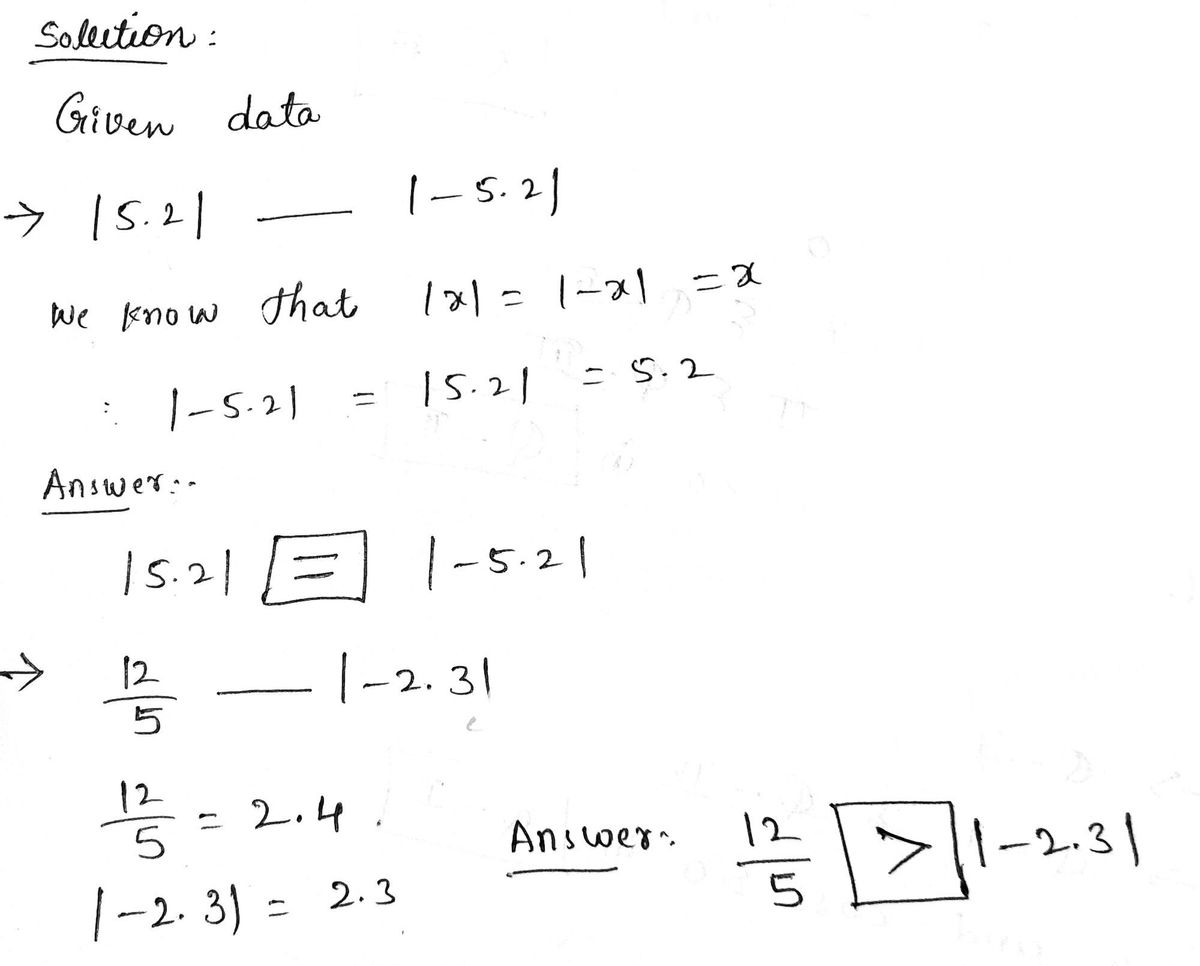 Solution :
Given data
→ |5.2| — |-5.2|
We know that |x| = |-x| = x
: |-5.2| = |5.2| = 5.2
Answer:-
|5.2| = |-5.2|
→ 12/5 — |-2.3|
12/5 = 2.4.
|-2.3| = 2.3
Answer: 12/5 > |-2.3|